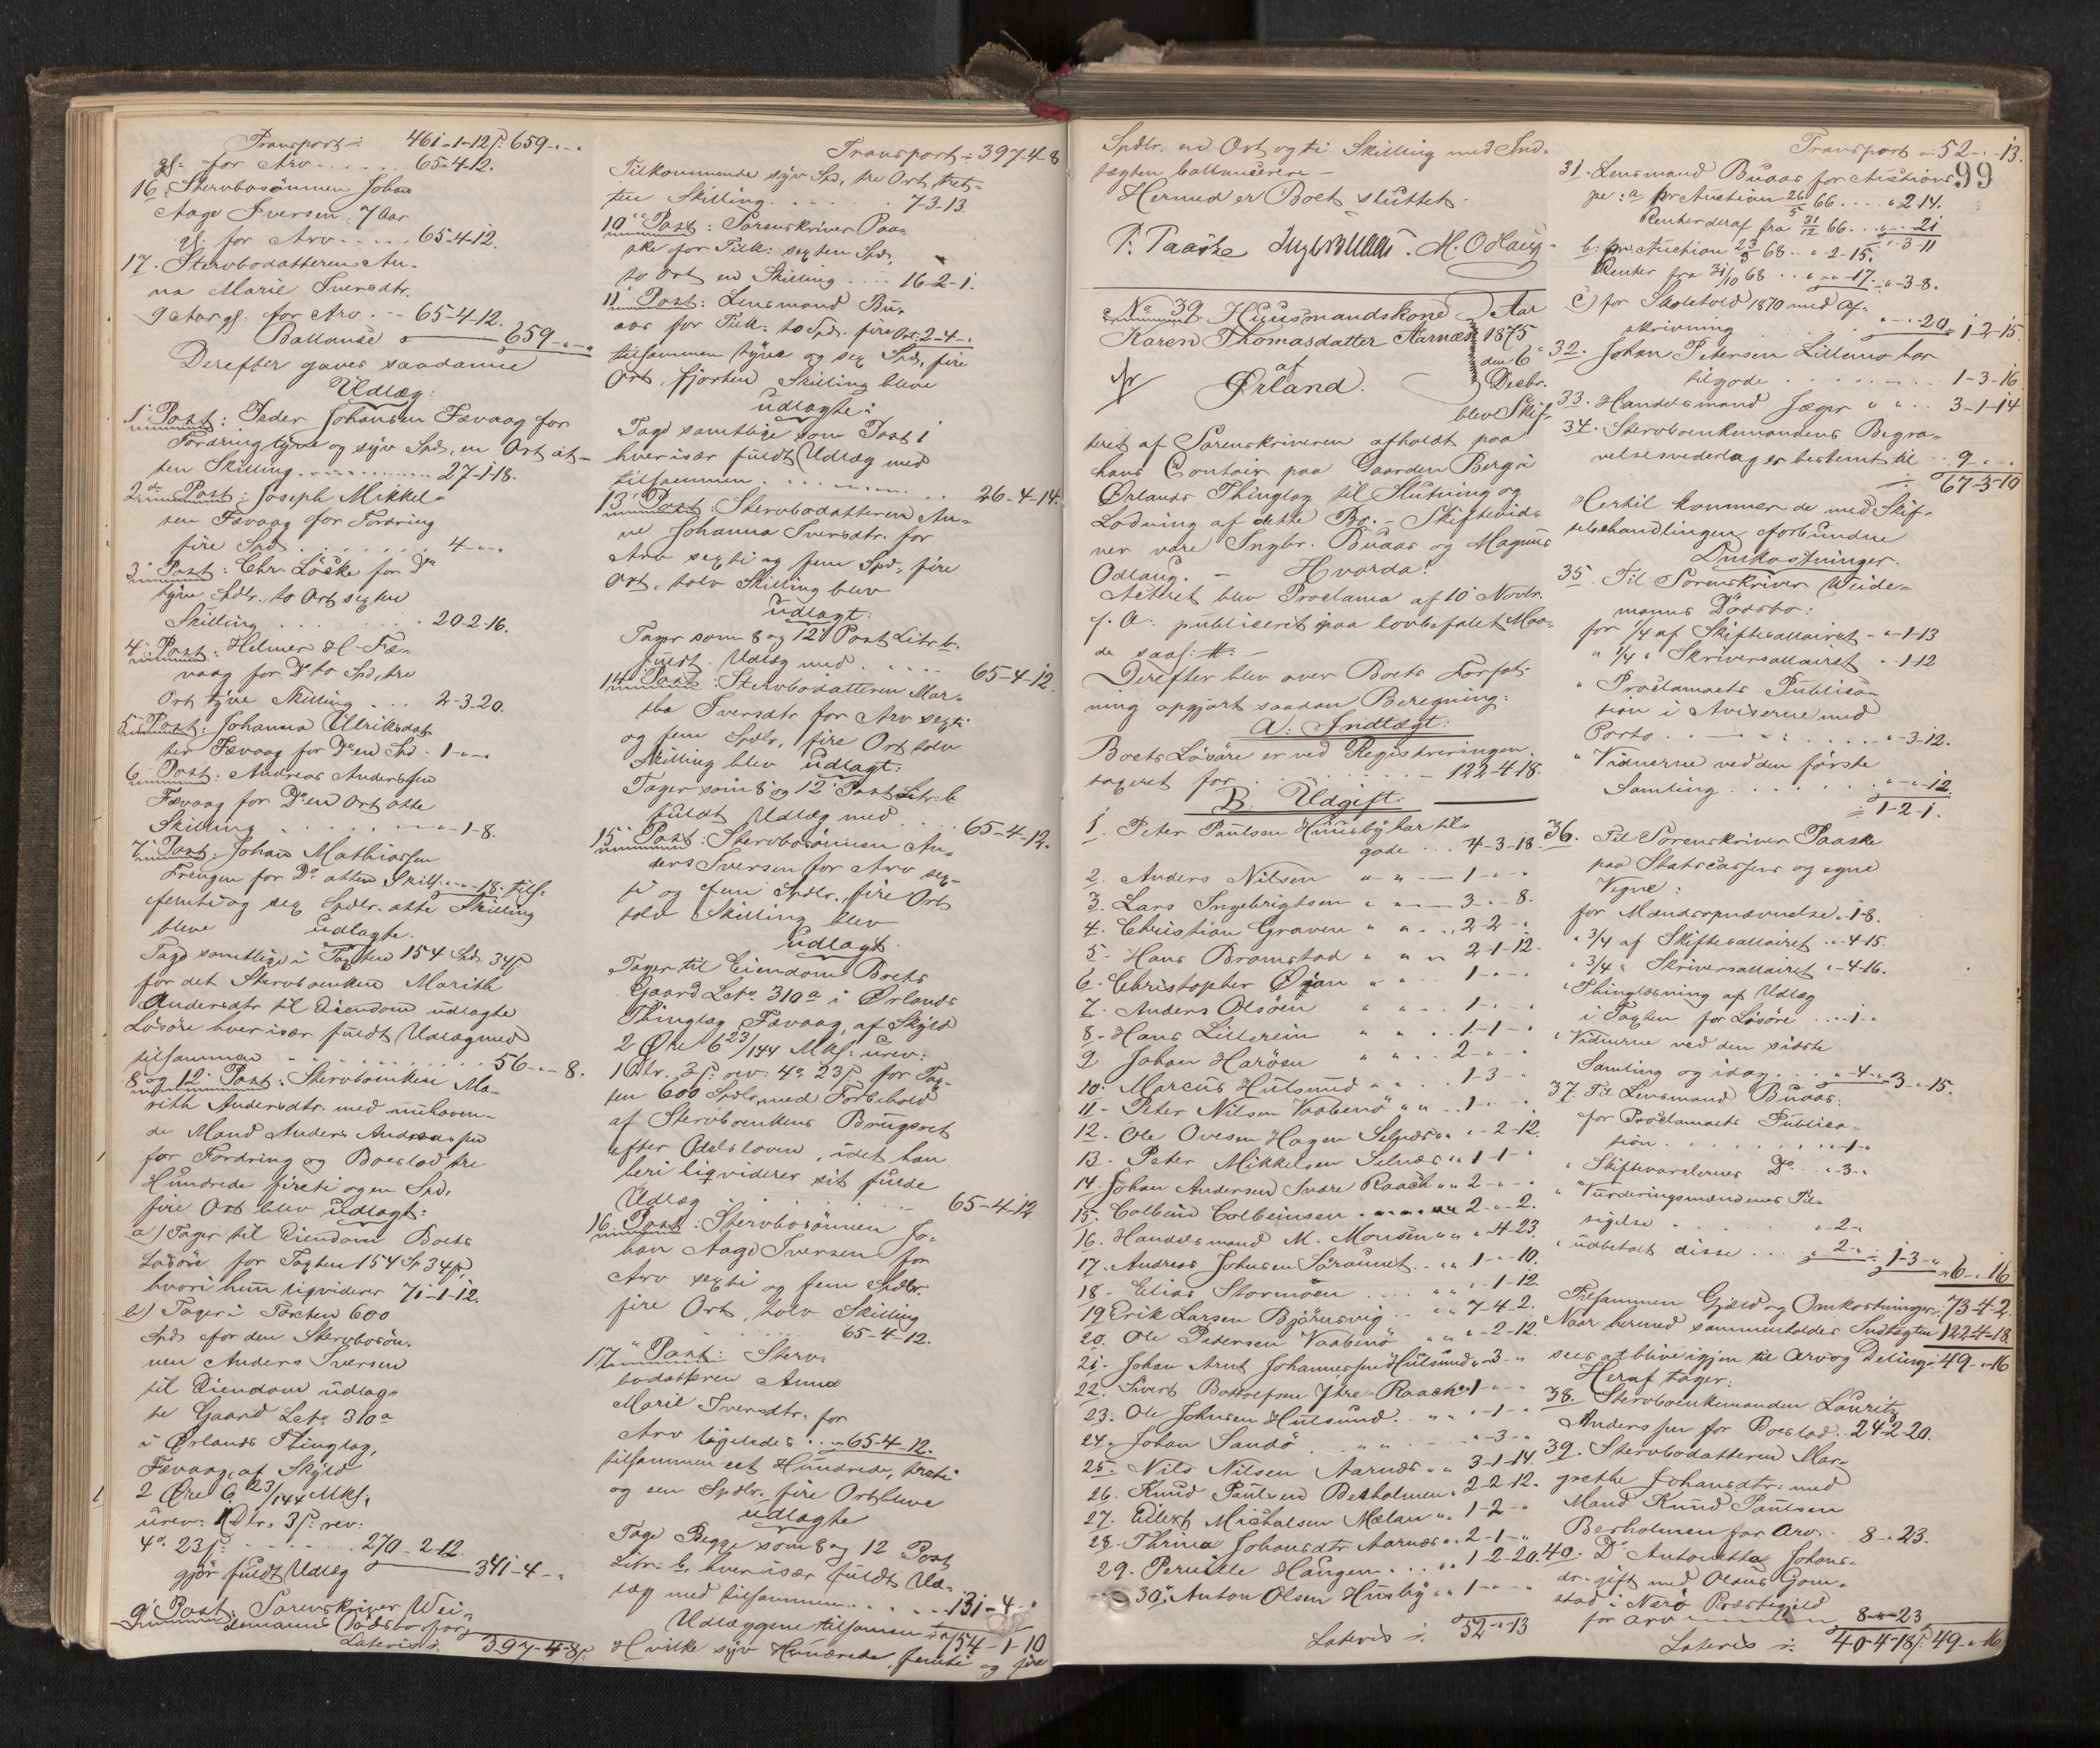 Transport ÷ 461-1-12 ß 659-"-"
gl: for Arv . . . . . 65-4-12.
16. Stervbosönnen Johan
Aage Iversen 7 Aar
gl. for Arv . . . . 65-4-12.
17. Stervbodatteren An-
na Marie Iversdtr.
9 Aar gl. for Arv. - - 65-4-12.
Ballance 659-"-"
Derefter gaves saadanne
Udlæg:
1' Post: Peder Johansen Fævaag for
Fordring tyve og syv Spd, en Ort at-
ten Skilling . . . . . . . . 27-1-18.
2den Post: Joseph Mikkel-
sen Fævaag for Fordring
fire Spd . . . . . . . . 4-"-"
3' Post: Chr. Löcke for Do
tyve Spdlr., to Ort sexten
Skilling . . . . . . . 20-2-16.
4' Post: Helmer H. Fæ-
vaag for Do to Spd, tre
Ort tyve Skilling . . . 2-3-20.
5' Post: Johanna Ulriksdat-
ter Fævaag for Do en Spd - 1-"-"
6' Post: Andreas Anderssen
Fævaag for Do en Ort otte
Skilling . . . . . . . . "-1-8.
7' Post: Johan Mathiassen
for Do atten Skill. "-"-18. tils:
femti og sex Spdlr. otte Skilling
bleve udlagte.
Tage samtlige i Taxten 154 Spd. 34 ß
for det Stervboenken Marith
Andersdtr til Eiendom udlagte
Lösöre hver især fuldt Udlæg med
tilsammen . . . . . . . . 56-"-8.
8 og 12' Post: Stervboenken Ma-
rith Andersdtr. med nuhaven-
de Mand Anders Andreassen
for Fordring og Boeslod tre
Hundrede firti og en Spd.
fire Ort blev udlagt:
a) Tager til Eiendom Boets
Lösöre for Taxten 154 Sp 34 ß,
hvori hun liqviderer 71-1-12.
b) Tager i Taxten 600
Spd for den Stervbosön-
nen Anders Iversen
til Eiendom udlag-
te Gaard Lbno 310a
i Ørlands Thinglag,
Fævaag, af Skyld
2 Øre 6 23/144 Mkl:
urev: 1 Dlr. 3 ß rev:
4" 23 ß . . . . . . 270-2-12.
gjør fuldt Udlæg 341-4-"
9' Post: Sorenskriver Wei-
demanns Dödsbo for
Lateris ÷ 397-4-8 ß
Transport ÷ 397-4-8
Tilkommende syv Spd, tre Ort, tret-
ten Skilling . . . . . . 7-3-13.
10' Post: Sorenskriver Paa-
ske for Tilk: sexten Spd,
to Ort en Skilling . . . . 16-2-1.
11' Post: Lensmand Bu-
aas for Tilk: to Spd. fire Ort: 2-4-"
tilsammen tyve og sex Spd, fire
Ort, fjorten Skilling bleve
udlagte:
Tage samtlige som Post 1
hver især fuldt Udlæg med
tilsammen . . . . . . . . 26-4-14.
13' Post: Stervbodatteren An-
ne Johanna Iversdtr. for
Arv sexti og fem Spd, fire
Ort, tolv Skilling blev
udlagt:
Tager som 8 og 12' Post Litr. b.
fuldt Udlæg med . . . . . 65-4-12.
14' Post: Stervbodatteren Mar-
tha Iversdtr for Arv sexti
og fem Spdlr, fire Ort tolv
Skilling blev udlagt:
Tager som 8 og 12' Post Litr. b
fuldt Udlæg med . . . 65-4-12.
15' Post: Stervbosönnen An-
ders Iversen for Arv sex-
ti og fem Spdlr. fire Ort
tolv Skilling blev
udlagt.
Tager til Eiendom Boets
Gaard Lbno 310a i Ørlands
Thinglag Fævaag, af Skyld
2 Øre 6 23/144 Mkl: urev:
1 Dlr. 3 ß: rev: 4" 23 ß for Tax-
ten 600 Spdlr, med Forbehold
af Stervboenkens Brugsret
efter Odelsloven, idet han
heri liqviderer sit fulde
Udlæg . . . . . . . 65-4-12
16. Post: Stervbosönnen Jo-
han Aage Iversen for
Arv sexti og fem Spdlr.
fire Ort, tolv Skilling
. . . . 65-4-12.
17' Post: Sterv-
bodatteren Anna
Marie Iversdtr. for
Arv ligeledes . . . 65-4-12.
tilsammen eet Hundrede, treti
og en Spdlr. fire Ort bleve
udlagte
Tage Begge som 8 og 12 Post
Litr: b, hver især fuldt Ud-
læg med tilsammen . . . . . 131-4-"
Udlæggene tilsammen ÷ 754-1-10
Hvilke syv Hundrede, femti og fire
Spdlr. en Ort og ti Skilling med Ind-
tægten ballancerere -
Hermed er Boet sluttet.
P. Paaske M. Odlaug
99
No 39 Huusmandskone Aar
Karen Thomasdatter Aarnæs 1875
af den 6'
Ørland. Decbr.
blev Skif-
teret af Sorenskriveren afholdt paa
hans Contoir paa Gaarden Berg i
Ørlands Thinglag til Slutning og
Lodning af dette Bo. - Skiftevid-
ner vare Ingbr. Buaas og Magnus
Odlaug. - Hvorda:
Acteret blev Proclama af 10' Novbr.
f. A. publiceret paa lovbefalet Maa-
de saal: #. -
Derefter blev over Boets Forfat-
ning opgjort saadan Beregning:
A: Indtægt:
Boets Lösöre er ved Registreringen
taxeret for . . . . . . . . . 122-4-18.
B. Udgift.
1. Peter Paulsen Huusby har til-
gode . . . 4-3-18.
2. Anders Nilsen " " - 1-"-"
3. Lars Ingebrigtsen " " - 3-"-8.
4. Christian Graven " " . . 2-2-"
5. Hans Bromstad " " " 2-1-12.
6. Christopher Øian " " . . 1-"-"
7. Anders Olsöen " " . . 1-"-"
8. Hans Litlerein " " . . 1-1-"
9. Johan Haröen " " . . 2-"-"
10. Marcus Hulsund " " . . 1-3-"
11. Peter Nilsen Vaabenö " " . . 1-"-"
12. Ole Ovesen Hagen Selnæs " " "-2-12.
13. Peter Mikkelsen Selnæs " " 1-1-"
14. Johan Andersen Indre Raach " " 2-"-"
15. Colbein Colbeinsen . . . " " 2-"-2.
16. Handelsmand M. Monsen " " "-4-23.
17. Andreas Johnsen Säraunet . " " 1-"-10.
18. Elias Stormoen . . . . " " "-1-12.
19 Erik Larsen Bjørnevig . . " " 7-4-2.
20. Ole Pedersen Vaabenö " " "-2-12.
21. Johan Arnt Johannessen Hulsund " "-3-"
22. Sivert Bottolfsen Ytre Raach " 1-"-"
23. Ole Johnsen Hulsund . . " " "-1-"
24. Johan Sandö . . . " " "-3-"
25. Nils Nilsen Aarnæs " " 3-1-14.
26. Knud Paulsen Berholmen " 2-2-12.
27. Eilert Michalsen Mælan " " 1-2-"
28. Thrine Johansdtr. Aarnæs " " 2-1-"
29. Pernille Haugen . . . " " 1-2-20.
30. Anton Olsen Husby " " 1-"-"
Lateris ÷ 52-"-13
Transport ÷ 52-"-13.
31. Lensmand Buaas for Auctions-
pe: a pr Auction 26/5 66 . . . . "-2-14.
Renter deraf fra 31/12 66 . . . "-"-21 "-3-11
b. pr. Auction 23/3 68 . . "-2-15.
Renter fra 31/10 68 . . "-"-17. "-3-8.
c) for Skoletold 1870 med Af-
skrivning . . . . . "-"-20. 1-2-15.
32. Johan Petersen Lillemo har
tilgode . . . . . . . . 1-3-16
33. Handelsmand Jæger " " . . 3-1-14
34. Stervboenkemandens Begra-
velsesvederlag er bestemt til . . 9-"-"
÷ 67-3-10
Hertil kommer de med Skif-
tebehandlingen forbundne
Omkostninger.
35. Til Sorenskriver Weide-
manns Dödsbo:
for 1/4 af Skiftesallairet - "-1-13
" 1/4 " Skriversallairet "-1-12
" Proclamaets Publica-
tion i Aviserne med
Porto . . . . . . . . "-3-12.
" Vidnerne ved den første
Samling . . . . . . . . "-"-12.
÷ 1-2-1.
36. Til Sorenskriver Paaske
paa Statscassens og egne
Vegne:
for Mændsopnævnelse "-1-8.
" 3/4 af Skiftesallairet "-4-15.
" 3/4 " Skriversallairet "-4-16.
" Thinglæsning af Udlæg
i Taxten for Lösöre . . . "-1-"
" Vidnerne ved den sidste
Samling og idag . . . "-4-" 3-"-15.
37. Til Lensmand Buaas:
for Proclamaets Publica-
tion . . . . . . . . "-1-"
" Skiftevarslernes Do . . "-3-"
" Vurderingsmændenes Til-
sigelse . . . . . . "-2-"
" udbetalt disse . . . . "-2-" ÷ 1-3-" ÷ 6-"-16
Tilsammen Gjæld og Omkostninger ÷ 73-4-2.
Naar hermed sammenholdes Indtægten 122-4-18.
sees at blive igjen til Arv og Deling ÷ 49-"-16
Heraf tager:
38. Stervboenkemanden Lauritz
Anderssen for Boeslod . . 24-2-20.
39. Stervbodatteren Mar-
grethe Johansdtr. med
Mand Knud Paulsen
Berholmen for Arv . . 8-"-23.
40. Do Antonetta Johans-
dr. gift med Olaus Gom-
stad i Nærö Præstegjeld
for Arv 8-"-23
Lateris ÷ 40-4-18 ß 49-"-16